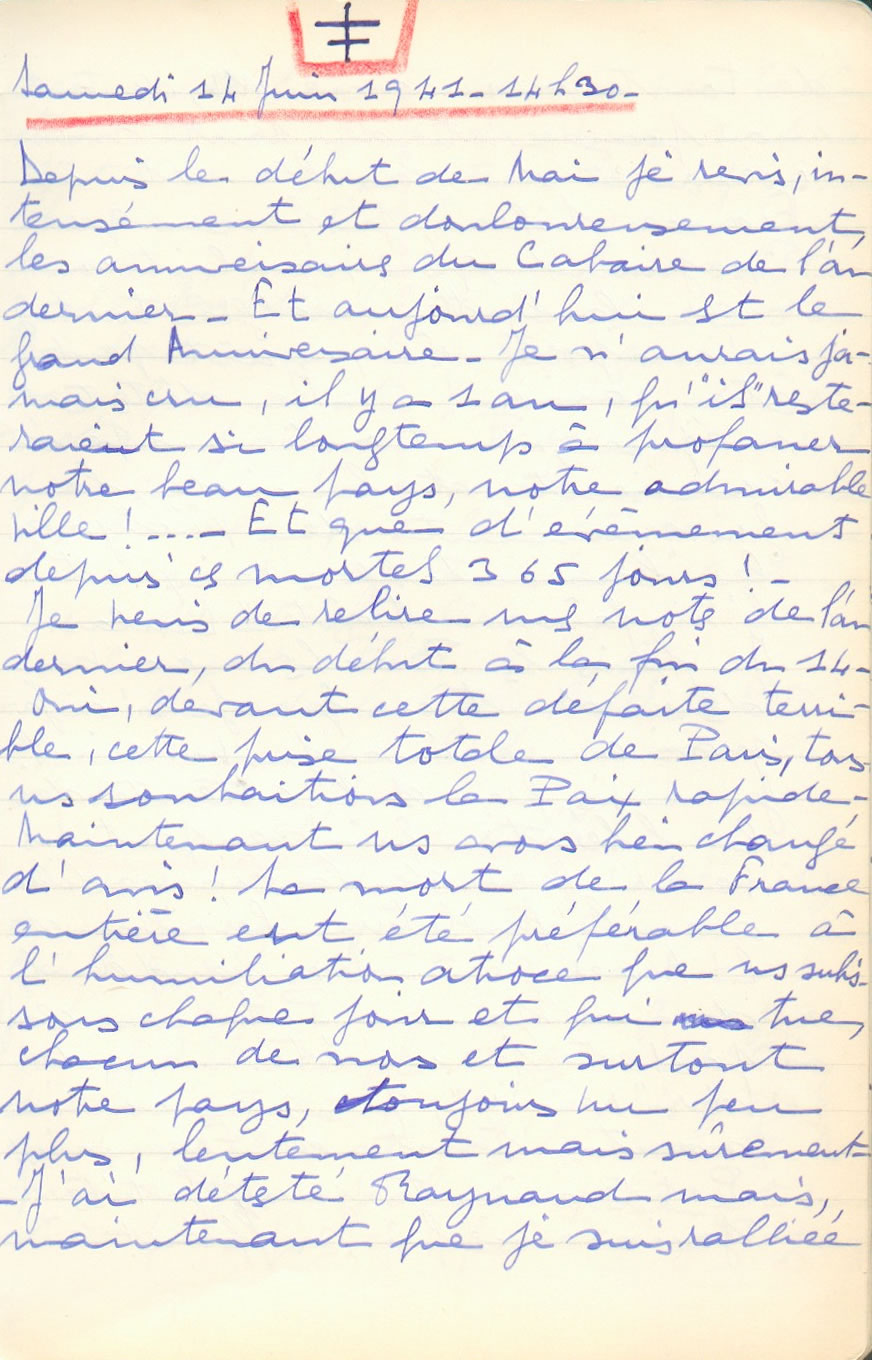 Samedi 14 Juin 1941 - 14h30 -
Depuis le début de Mai je revis, in-
tensément et douloureusement,
les anniversaires du Calvaire de l'an
dernier - Et aujourd'hui est le
grand Anniversaire - Je n'aurais ja-
mais cru, il y a 1 an, qu'"ils" reste-
raient si longtemps à profaner
notre beau pays, notre admirable
ville ! ... - Et que d'évènements
depuis ces mortels 365 jours ! -
Je viens de relire mes notes de l'an
dernier, du début à la fin du 14 -
Oui, devant cette défaite terri-
ble, cette prise totale de Paris, tous
ns souhaitions la Paix rapide -
Maintenant ns avons bien changé
d'avis ! La mort de la France
entière eut été préférable à
l'humiliation atroce que ns subis-
sons chaque jour et qui tue,
chacun de nous et surtout
notre pays, toujours un peu
plus, lentement mais sûrement -
- J'ai détesté Raynaud mais,
maintenant que je suis ralliée